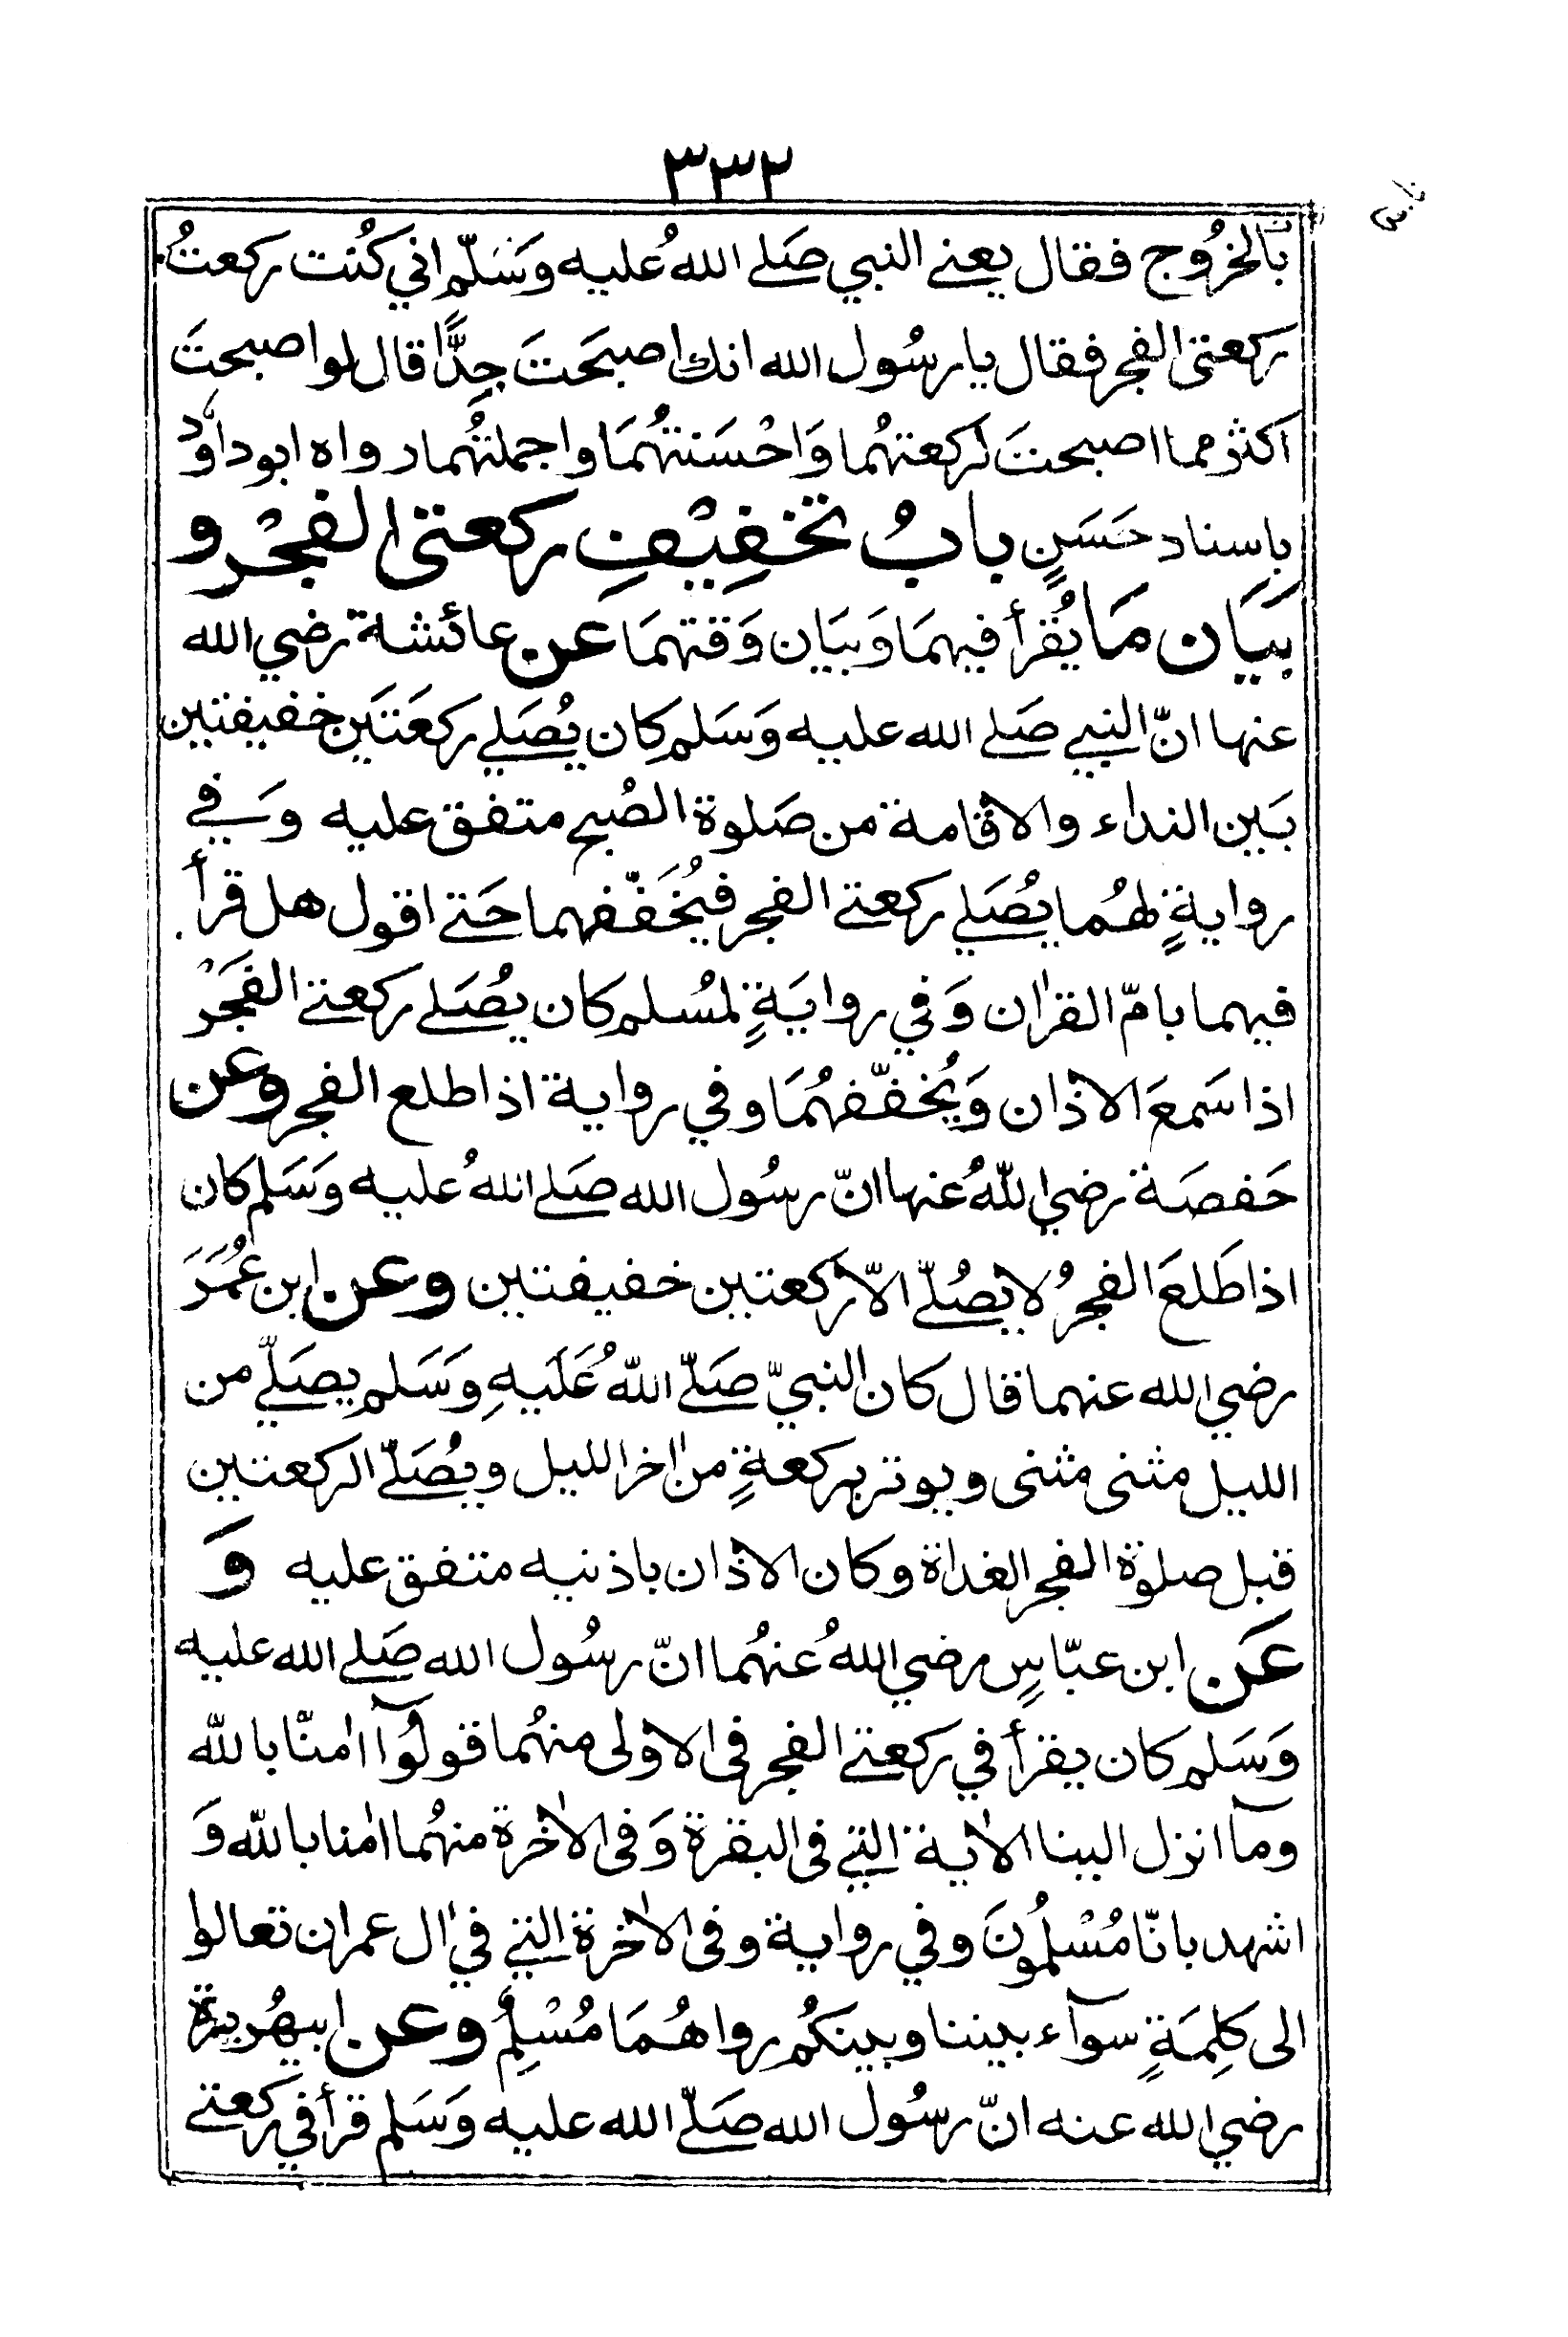 ٣٣٢
بالخُرُوج فقال يعنى النبي صَلى اللهُ عليه وَسَلّم اني كُنت ركعتُ
ركعتى الفجر فقال يا رسُول الله انك اصبحَتَ جِدًّا قال لو اصبحتَ
اكثر مما اصبحتَ لركعتهُما وَاحْسَنتهُمَا واجملتهُما رواه ابو داؤد
باسناد حَسَنٍ بابُ تخفِيْفِ ركعتى الفجْر و
بَيَان مَا يُقرأ فيهمَا وَبيَان وَقتهمَا عن عائشة رضي الله
عنها انّ النبي صَلى الله عليه وَسَلم كان يُصَلي ركعَتَين خفيفتين
بَين النداء والاقامة من صَلوة الصُبح متفق عليه وَفي
روايةٍ لهُما يُصَلي ركعتى الفجر فيُخَفّفهما حَتى اقول هل قرأ
فيهما بامّ القران وَفي روايَةٍ لمُسلم كان يصُلى ركعتى الفَجْر
اذا سَمعَ الاذان وَيُخفّفهُمَا وفي رواية اذا طلع الفجر وعن
حَفصَة رضي اللّٰهُ عنها انّ رسُول الله صَلى اللهُ عليه وَسَلم كان
اذا طَلعَ الفجرُ لا يصُلّى الاّ ركعتين خفيفتين وعن ابن عُمَرَ
رضي الله عنهما قال كان النبيّ صَلّى اللّٰهُ عَلَيهِ وَسَلم يصَلّي من
الليل مثنى مثنى ويوتر بركعةٍ من اٰخر الليل ويُصَلّى الركعتين
قبل صلوة الفجر الغداة وكان الاذان باذنيه متفق عليه وَ
عَن ابن عبّاسٍ رضي اللهُ عنهُما انّ رسُول الله صَلى الله عليه
وَسَلم كان يقرأ في ركعتى الفجر فى الاولى منهُما قولُوآ اٰمنّا باللّٰه
ومآ انزل الينا الاٰية التى فى البقرة وَفى الاٰخرة منهُما اٰمنا باللّٰه وَ
اشهد بانّا مُسْلمُونَ وفي رواية وفى الاٰخرة التى في اٰل عمران تعالوا
الى كلِمَةٍ سوآء بيننا وبينكُم رواهُمَا مُسْلِمٌ وعن ابيهُريرة
رضي الله عنه انّ رسُول الله صَلّى الله عليه وَسَلم قرأ في ركعتى